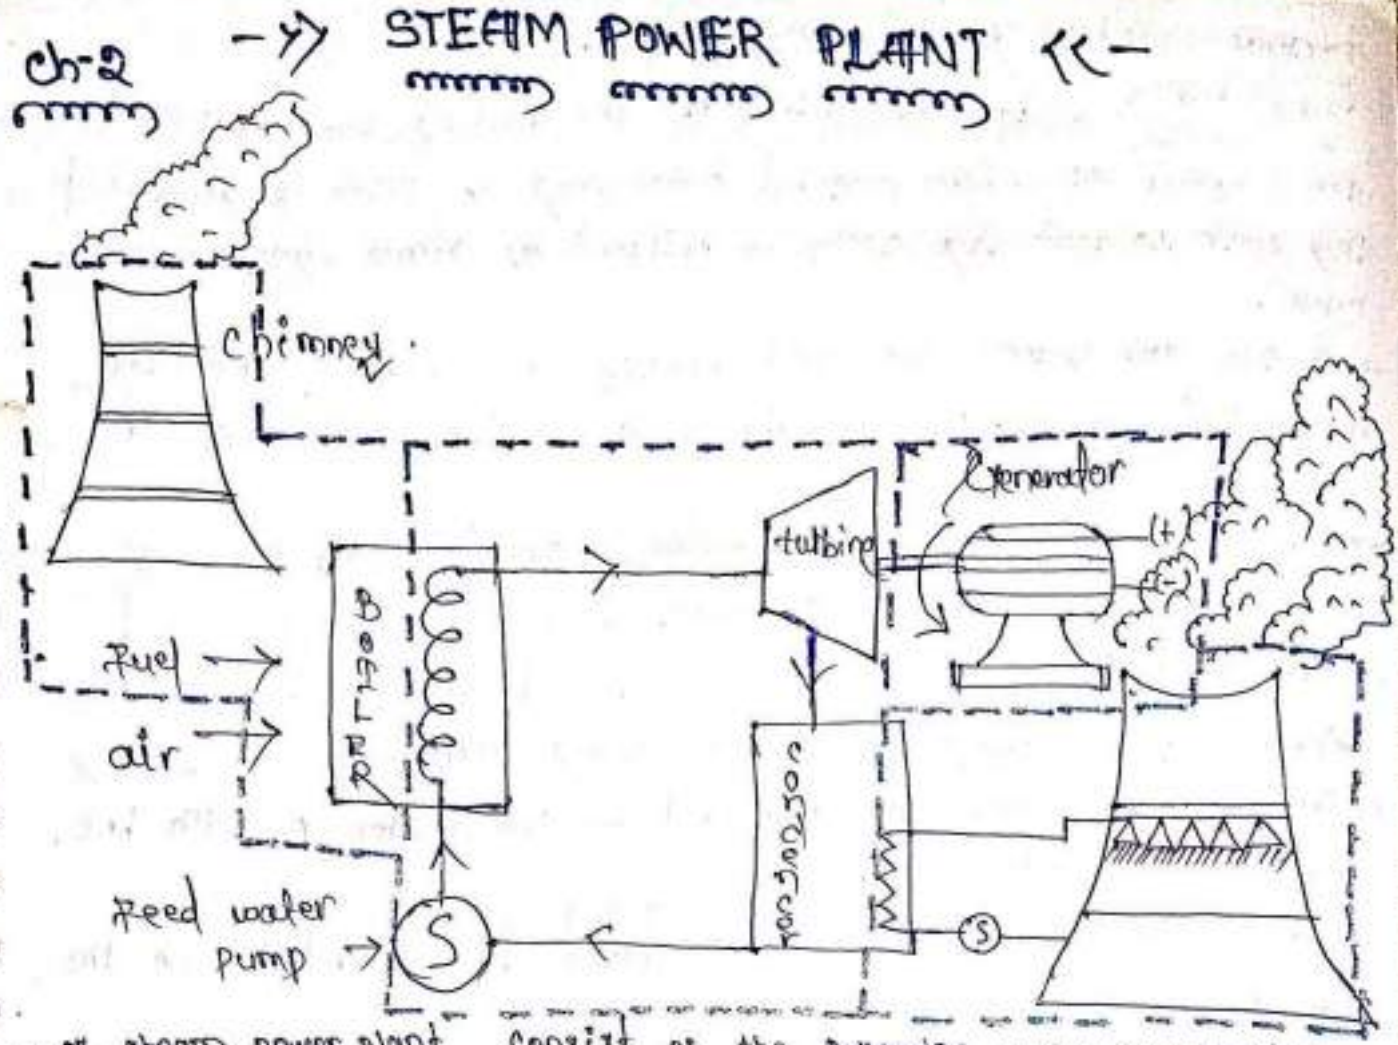 Ch-2
STEAM POWER PLANT
Chimney
Generator
turbine
(+)
BOILER
Fuel
air
Condensor
Feed water
pump
S
S
steam power plant consist of the